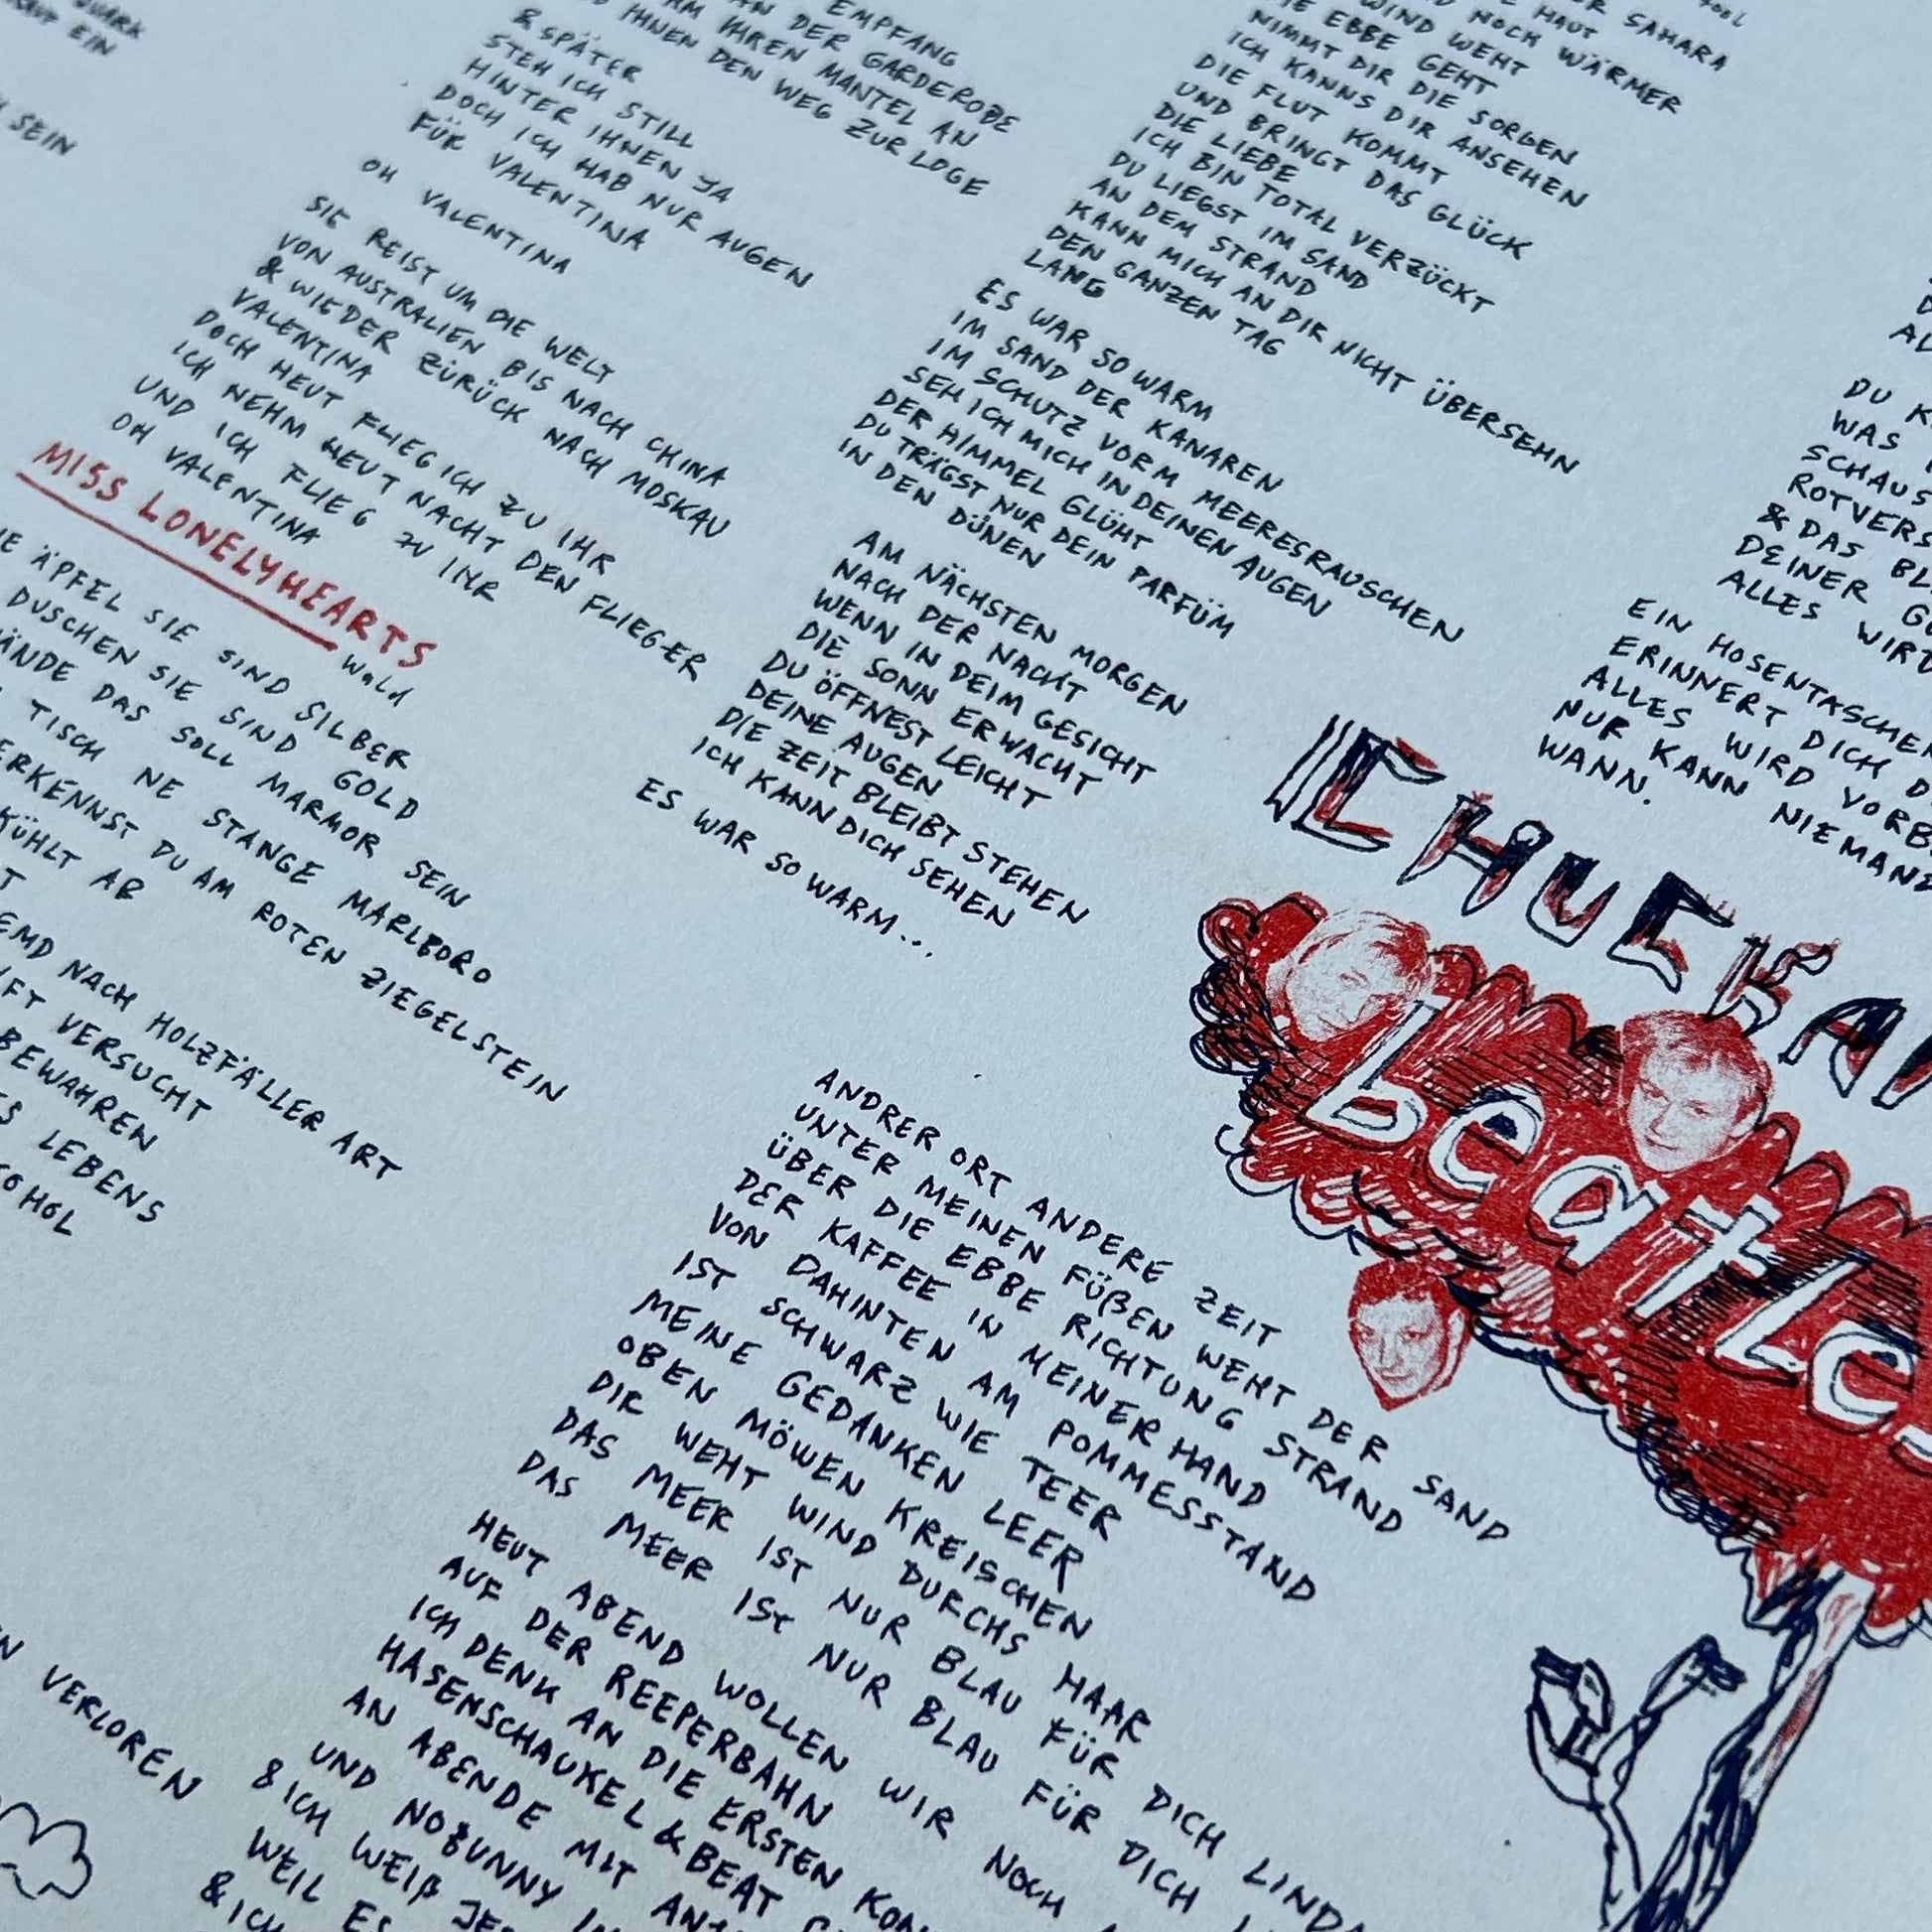 EIN
SEIN
EMPFANG
AN DER GARDEROBE
IHREN MANTEL AN
IHNEN DEN WEG ZUR LOGE
& SPÄTER
STEH ICH STILL
HINTER IHNEN JA
DOCH ICH HAB NUR AUGEN
FÜR VALENTINA
OH VALENTINA
SIE REIST UM DIE WELT
VON AUSTRALIEN BIS NACH CHINA
& WIEDER ZÜRÜCK NACH MOSKAU
VALENTINA
DOCH HEUT FLIEG ICH ZU IHR
ICH NEHM HEUT NACHT DEN FLIEGER
UND ICH FLIEG ZU IHR
OH VALENTINA
MISS LONELYHEARTS
Wald
ÄPFEL SIE SIND SILBER
DUSCHEN SIE SIND GOLD
DAS SOLL MARMOR SEIN
TISCH NE STANGE MARLBORO
ERKENNST DU AM ROTEN ZIEGELSTEIN
KÜHLT AB
NACH HOLZFÄLLER ART
VERSUCHT
BEWAHREN
LEBENS
VERLOREN
SAHARA
HAUT
NOCH WÄRMER
WIND WEHT
DIE EBBE GEHT
NIMMT DIR DIE SORGEN
ICH KANNS DIR ANSEHEN
DIE FLUT KOMMT
UND BRINGT DAS GLÜCK
DIE LIEBE
ICH BIN TOTAL VERZÜCKT
DU LIEGST IM SAND
AN DEM STRAND
KANN MICH AN DIR NICHT ÜBERSEHN
DEN GANZEN TAG
LANG
ES WAR SO WARM
IM SAND DER KANAREN
IM SCHUTZ VORM MEERESRAUSCHEN
SEH ICH MICH IN DEINEN AUGEN
DER HIMMEL GLÜHT
DU TRÄGST NUR DEIN PARFÜM
IN DEN DÜNEN
AM NÄCHSTEN MORGEN
NACH DER NACHT
WENN IN DEIM GESICHT
DIE SONN ERWACHT
DU ÖFFNEST LEICHT
DEINE AUGEN
DIE ZEIT BLEIBT STEHEN
ICH KANN DICH SEHEN
ES WAR SO WARM...
ANDRER ORT ANDERE ZEIT
UNTER MEINEN FÜßEN WEHT DER SAND
ÜBER DIE EBBE RICHTUNG STRAND
DER KAFFEE IN MEINER HAND
VON DAHINTEN AM POMMESSTAND
IST SCHWARZ WIE TEER
MEINE GEDANKEN LEER
OBEN MÖWEN KREISCHEN
DIR WEHT WIND DURCHS HAAR
DAS MEER IST NUR BLAU FÜR DICH LINDA
DAS MEER IST NUR BLAU FÜR DICH
HEUT ABEND WOLLEN WIR NOCH
AUF DER REEPERBAHN
ICH DENK AN DIE ERSTEN
HASENSCHAUKEL & BEAT
AN ABENDE MIT
UND NOBUNNY
& ICH WEIß
WEIL ES
& ICH
DU
WAS
& DAS
DEINER
ALLES
EIN
ERINNERT DICH
ALLES WIRD
NUR KANN
WANN.
Beatles